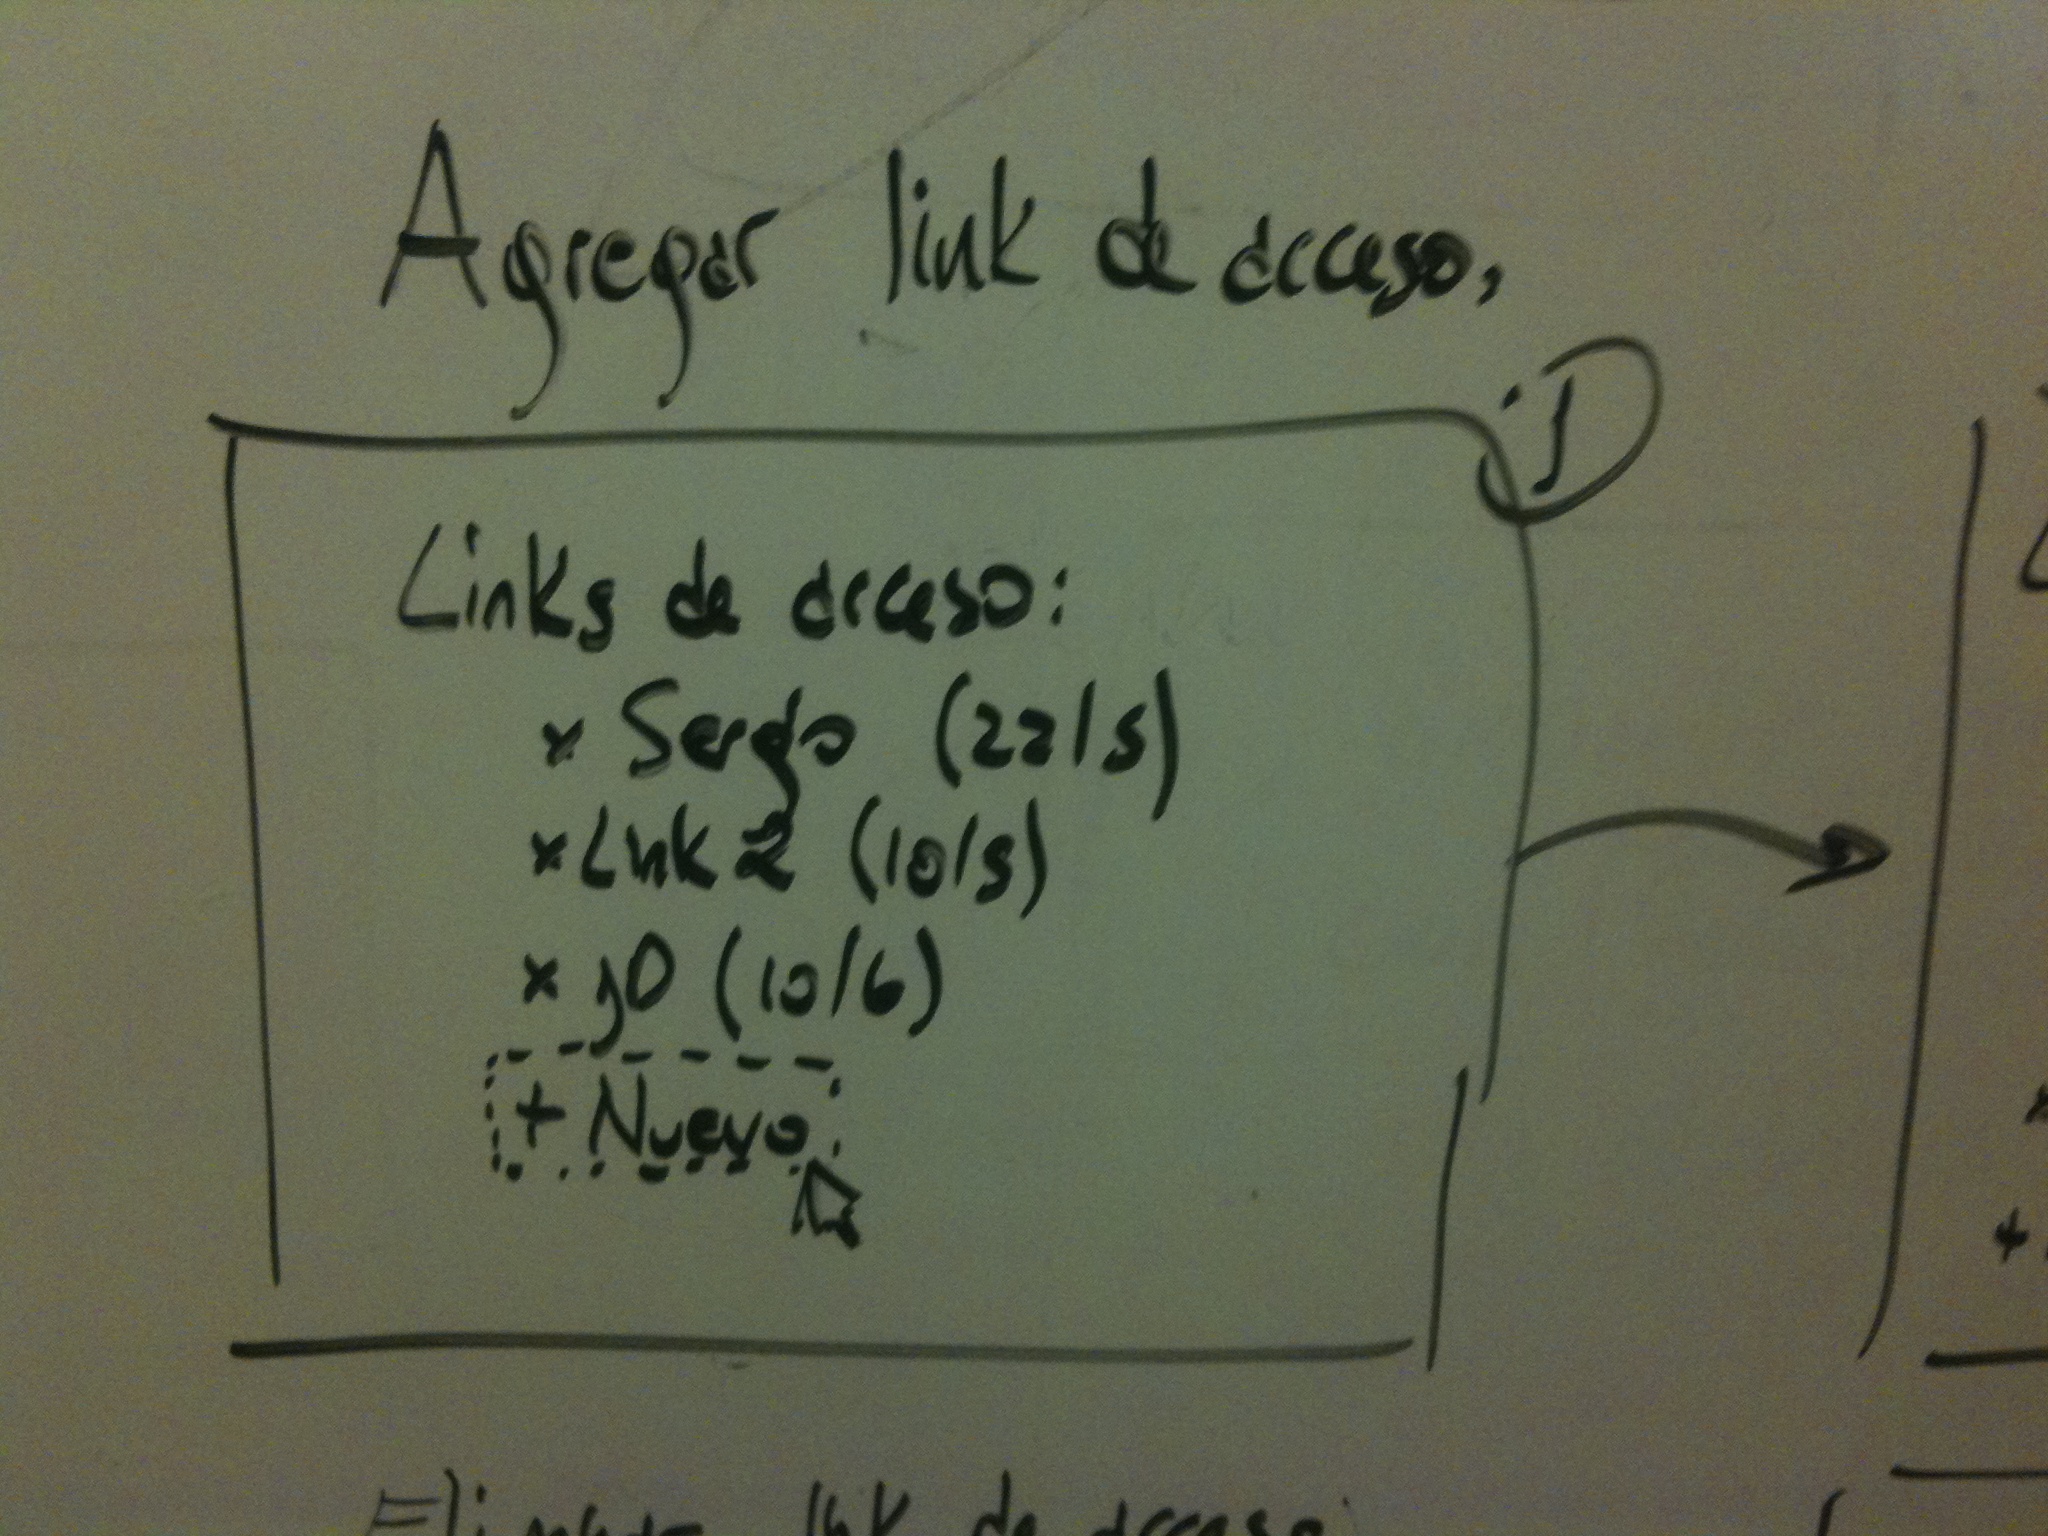 Agregar link de acceso,
1
Links de acceso:
x Sergio (22/5)
x Link 2 (10/5)
x yo (10/6)
+ Nuevo
Eliminar link de acceso: